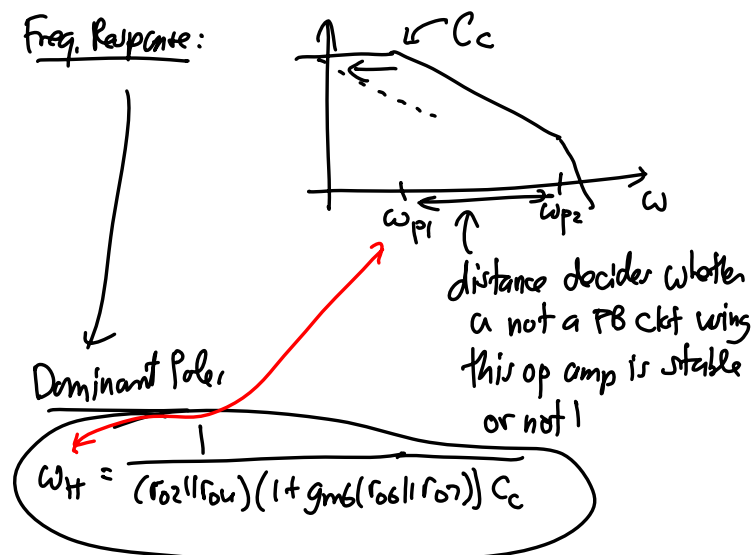 Freq. Response:
C_c
ω_p1
ω_p2
ω
distance decides whether
or not a FB ckt using
this op amp is stable
or not!
Dominant Pole:
ω_H = 1 / ((r_o2 || r_o4)(1 + g_m6(r_o6 || r_o7)) C_c